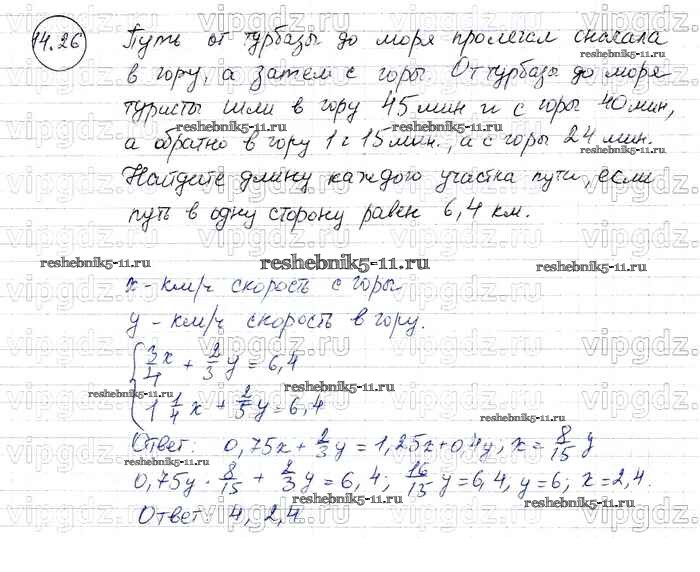 14.26
Путь от турбазы до моря пролегал сначала
в гору, а затем с горы. От турбазы до моря
туристы шли в гору 45 мин и с горы 40 мин,
reshebnik5-11.ru
а обратно в гору 1 ч 15 мин., а с горы 24 мин.
Найдите длину каждого участка пути, если
путь в одну сторону равен 6,4 км.
reshebnik5-11.ru
x - км/ч скорость с горы
y - км/ч скорость в гору.
3/4 x + 2/3 y = 6,4
1 1/4 x + 2/5 y = 6,4
reshebnik5-11.ru
Ответ: 0,75x + 2/3 y = 1,25x + 0,4y, x = 8/15 y
0,75y · 8/15 + 2/3 y = 6,4; 16/15 y = 6,4, y = 6; x = 2,4.
Ответ: 4, 2,4
vipgdz.ru